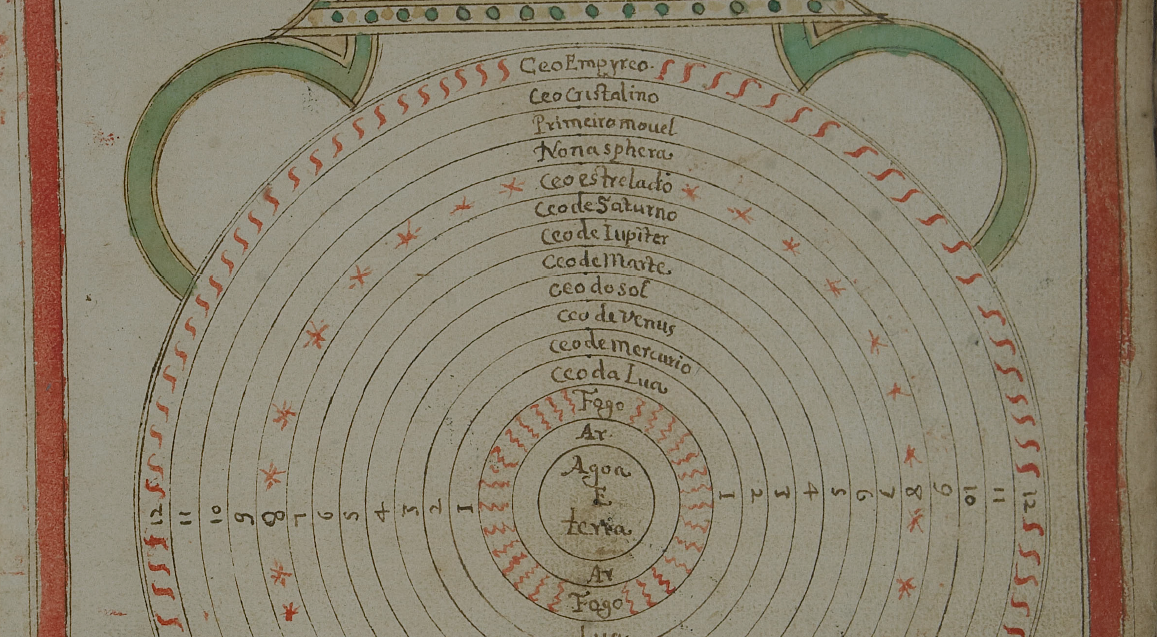 Ceo Empyreo.
Ceo Cristalino
Primeiro mouel
Nona sphera
Ceo estrelado
Ceo de Saturno
Ceo de Iupiter
Ceo de Marte.
Ceo do sol
Ceo de venus
Ceo de mercurio
Ceo da Lua
Fogo
Ar.
Agoa
E
terra
12 11 10 9 8 7 6 5 4 3 2 1
1 2 3 4 5 6 7 8 9 10 11 12
Ar
Fogo
Lua